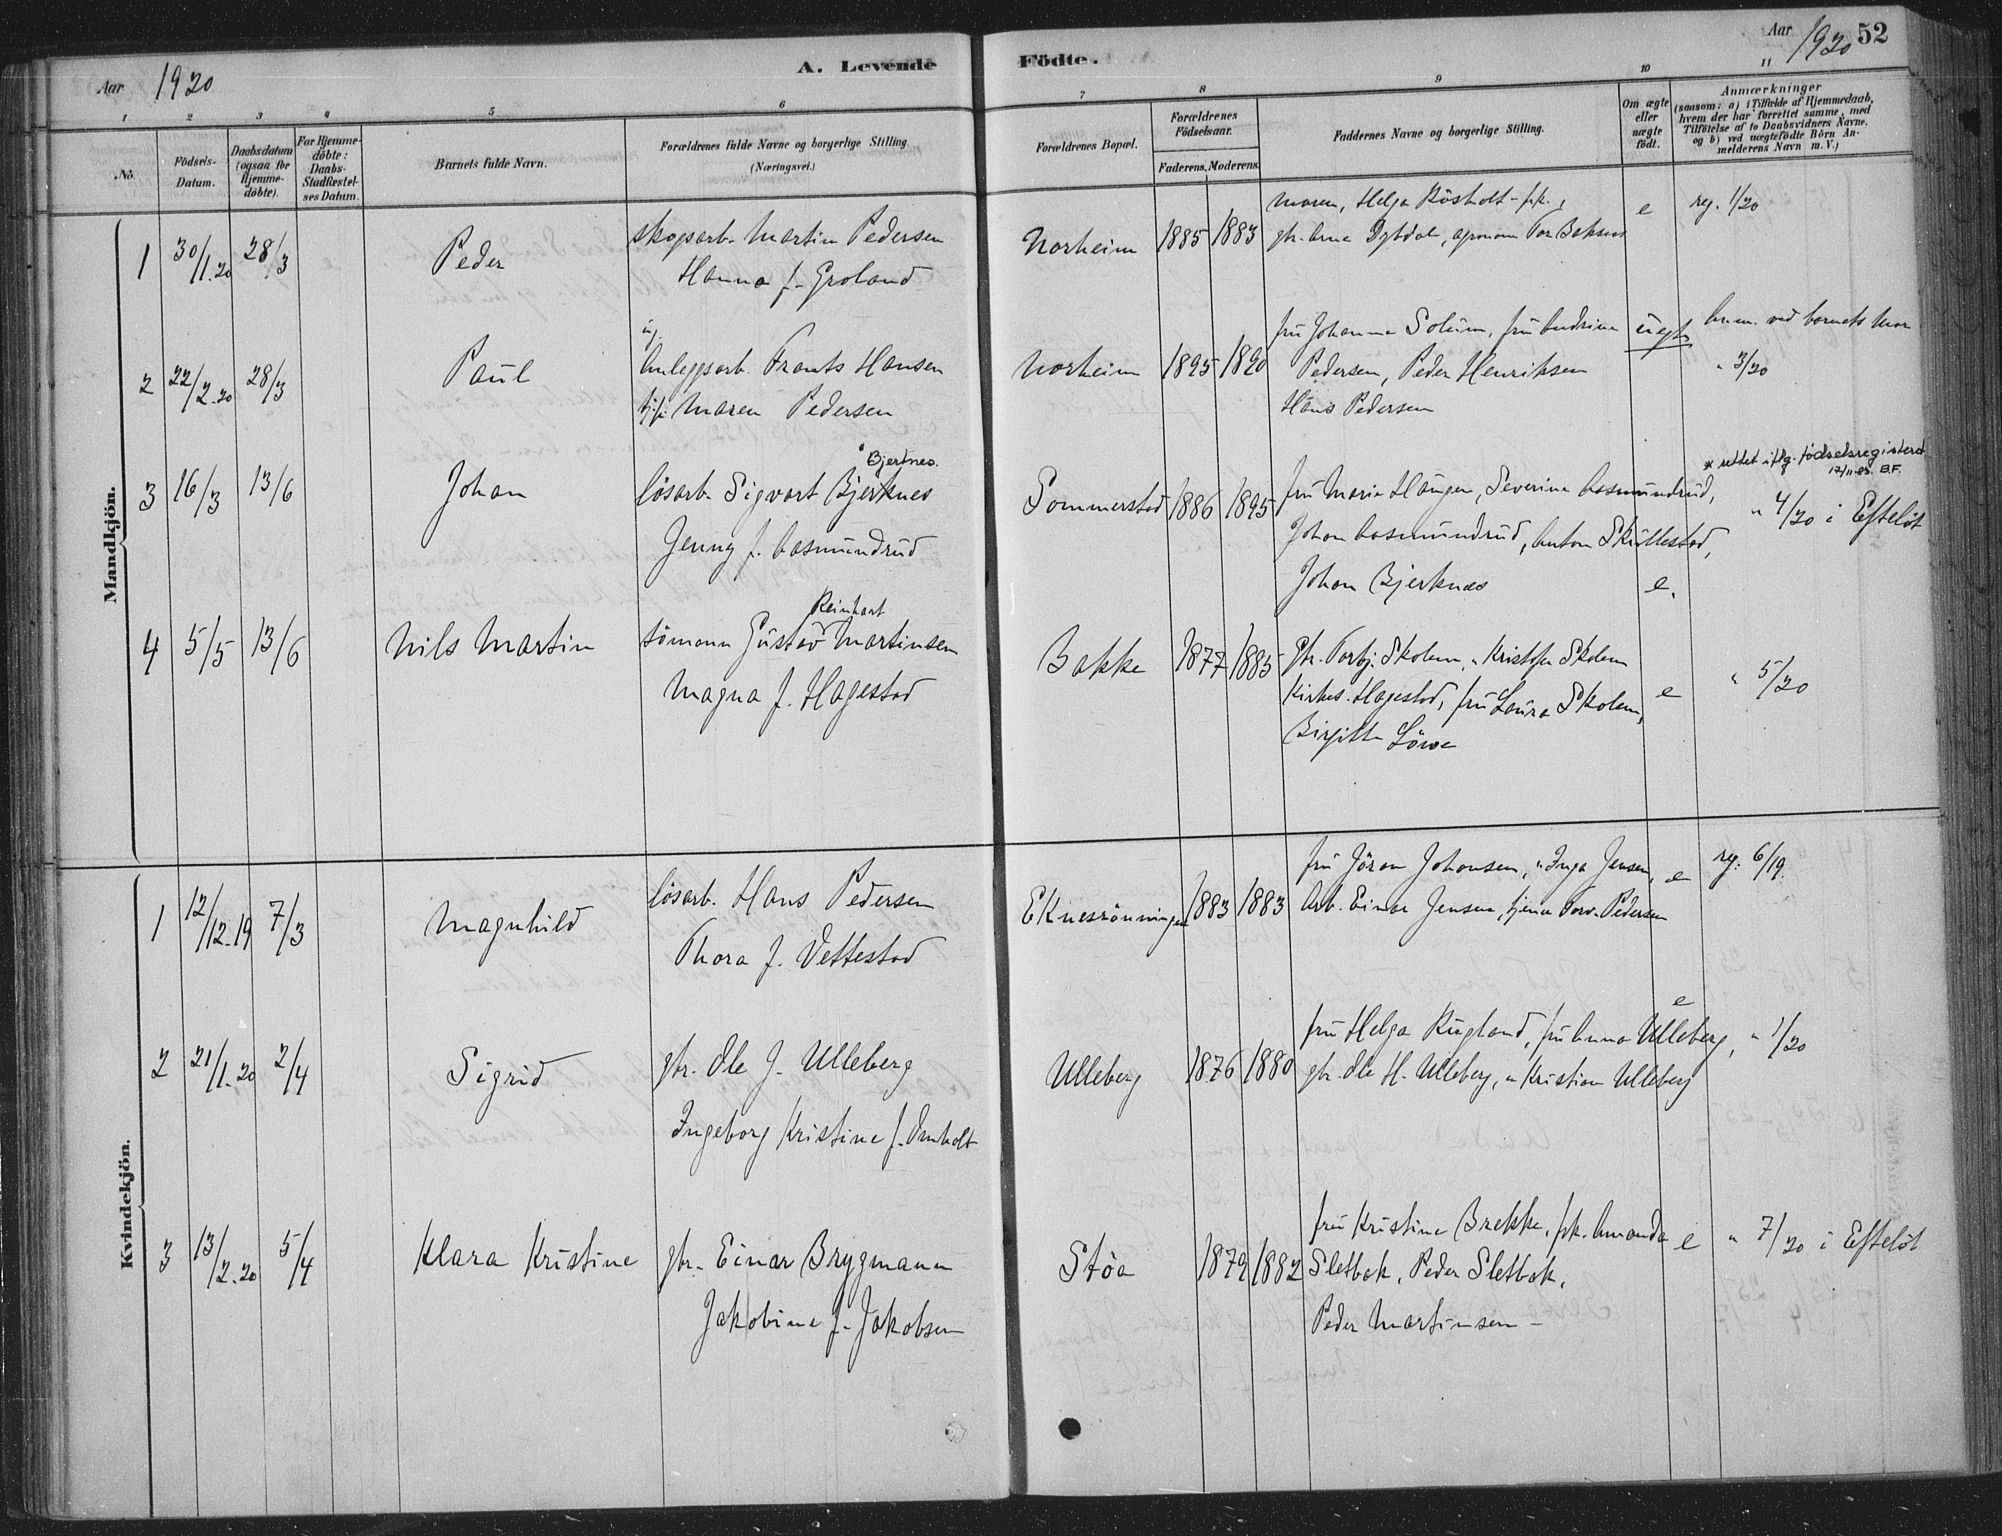 Aar 1920
A. Levende Födte.
Aar 1920 52
1 2 3 4 5 6 7 8 9 10 11
No.
Födsels-Datum.
Daabsdatum (ogsaa for Hjemme-döbte).
For Hjemme-döbte: Daabs-Stadfæstel-ses Datum.
Barnets fulde Navn.
Forældrenes fulde Navne og borgerlige Stilling.
(Næringsvei.)
Forældrenes Bopæl.
Forældrenes Födselsaar.
Faderens. Moderens.
Faddernes Navne og borgerlige Stilling.
Om ægte eller uægte födt.
Anmærkninger
(saasom: a) i Tilfælde af Hjemmedaab,
hvem der har forrettet samme, med
Tilföielse af to Daabsvidners Navne.
og b) ved uægtefödte Börn An-
melderens Navn m. V.)
Mandkjön.
1 30/1.20 28/3 Peder
skogsarb. Martin Pedersen
Hanna f. Groland
Norheim 1885 1883
moren, Helga Kösholt - frk.,
gbr. Arne Dybdal, agronom Tor
e reg. 1/20
2 22/2.20 28/3 Paul
Anleggsarb. Frants Hansen
Maren Pedersen
Norheim 1895 1890
fru Johanne Solum, fru Andrine
Pedersen, Peder Henriksen
Hans Pedersen
uegte anm. ved barnets mor
" 3/20
3 16/3 13/6 Johan
* Bjertnes.
lösarb. Sigvart Bjerknes
Jenny f. Aasmundrud
Sommerstad 1886 1895
fru Marie Haugen, Severine Aasmundrud,
Johan Aasmundrud, Anton Skullestad,
Johan Bjerknes
e.
* rettet iflg. fødselsregisteret
17/11-83. B.F.
" 4/20 i Efteløt
4 5/5 13/6 Nils Martin
Reinhart
sömann Gustav Martinsen
Magna f. Hagestad
Bakke 1877 1885
Gbr. Torbj. Skolem, " Kristofer Skolem
Kirkes. Hagestad, fru Laura Skolem,
Birgitte Löwe
e " 5/20
Kvindekjön.
1 12/12.19 7/3 Magnhild
lösarb. Hans Pedersen
Thora f. Vettestad
Eknesrönningen 1883 1883
fru Jöran Johansen, " Inga Jensen,
Arb. Einar Jensen, tjener Torv. Pedersen
e reg. 6/19.
2 21/1.20 2/4 Sigrid
gbr. Ole J. Ulleberg
Ingeborg Kristine f. Omholt
Ulleberg 1876 1880
fru Helga Rugland, fru Anna Ulleberg,
gbr. Ole H. Ulleberg, " Kristian Ulleberg
e " 1/20
3 13/2.20 5/4 Klara Kristine
gbr. Einar Brygmann
Jakobine f. Jakobsen
Stöa 1879 1882
fru Kristine Brekke, frk. Amanda
Sletbak, Peder Sletbak,
Peder Martinsen -
e " 7/20 i Efteløt